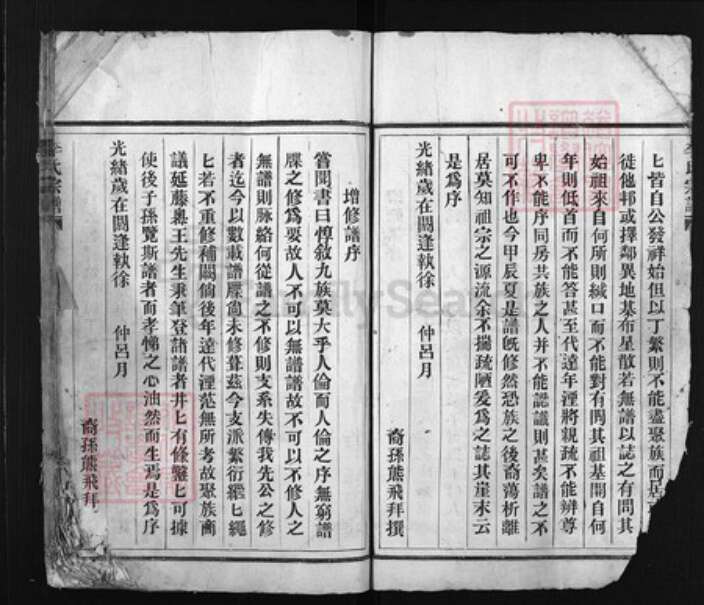 匕皆自公發祥始但以丁繁則不能盡聚族而居
徒他邨或擇鄰異地基布星散若無譜以誌之有問其
始祖來自何所則緘口而不能對有問其祖基開自何
年則低首而不能答甚至代遠年湮將親疏不能辨尊
卑不能序同房共族之人并不能認識則甚矣譜之不
可不作也今甲辰夏是譜旣修然恐族之後裔蕩析離
居莫知祖宗之源流余不揣疏陋爰爲之誌其崖末云
是爲序
光緒歲在閼逢執徐 仲呂月
裔孫熊飛拜撰
增修譜序
嘗聞書曰惇敘九族莫大乎人倫而人倫之序無窮譜
牒之修爲要故人不可以無譜譜故不可以不修人之
無譜則脉絡何從譜之不修則支系失傳我先公之修
者迄今以數載譜牒尙未修葺茲今支派繁衍繼匕繩
匕若不重修補闕倘後年遠代湮范無所考故聚族商
議延藤嶴王先生秉筆登諸譜者井匕有條鑿匕可據
使後子孫覽斯譜者而孝悌之心油然而生焉是爲序
光緒歲在閼逢執徐 仲呂月
裔孫熊飛拜
氏宗譜
FamilySearch